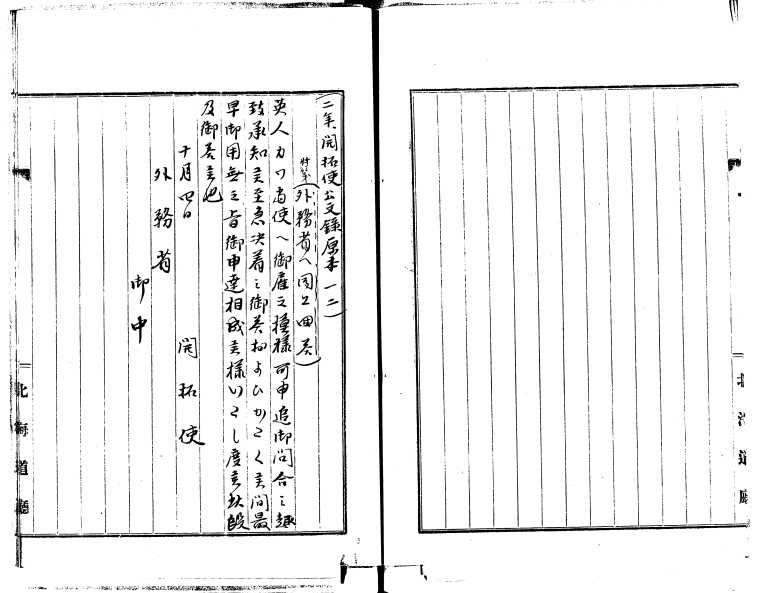 (二年開拓使公文録原本一二)
付箋(外務省ヘ同上回答)
英人カワ者使ヘ御雇之模様可申追御問合之趣
致承知候至急決着之御答およひかたく候間最
早御用無之旨御申達相成候様いたし度候此段
及御答候也
十月四日 開拓使
外務省
御中
北海道廳
北海道廳